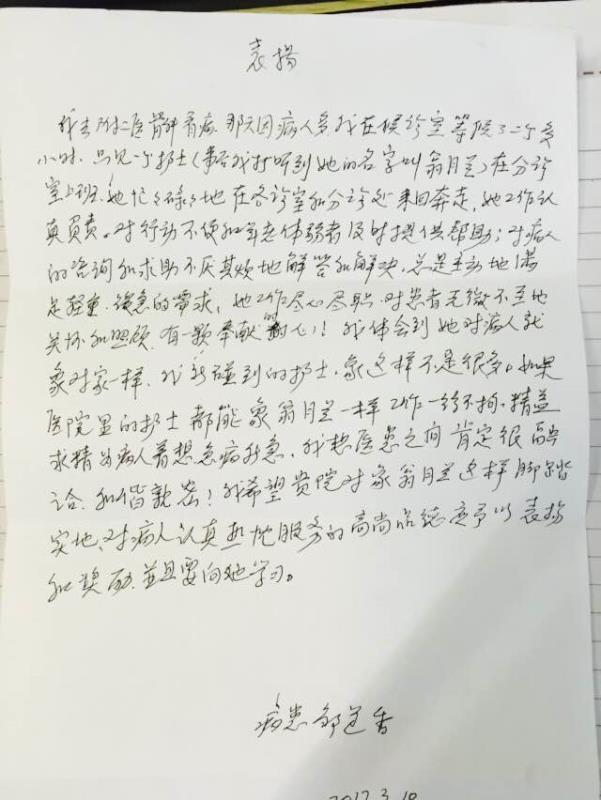 表扬
我去附二医骨科看病,那天因病人多我在候诊室等候了二个多
小时.只见一个护士(事后我打听到她的名字叫翁月呈)在分诊
室上班,她忙忙碌碌地在各诊室和分诊处来回奔走,她工作认
真负责。对行动不便和年老体弱者及时提供帮助;对病人
的咨询和求助不厌其烦地解答和解决,总是主动地满
足轻重.缓急的需求,她工作尽心尽职.对患者无微不至地
关怀和照顾,有一颗奉献的心!我体会到她对病人就
象对家一样,我所碰到的护士,象这样不是很多。如果
医院里的护士都能象翁月呈一样工作一丝不拘,精益
求精为病人着想急病所急,我想医患之间肯定很融
洽、和谐亲密!我希望贵院对象翁月呈这样脚踏
实地、对病人认真热忱服务的高尚品德应予以表扬
和奖励,并且要向她学习。
病患 香
2017.3.10